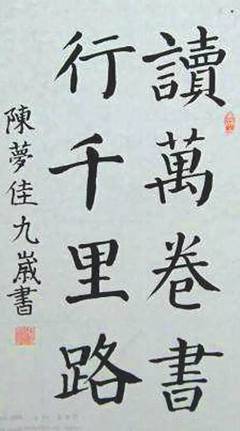 讀萬卷書
行千里路
陳夢佳九歲書